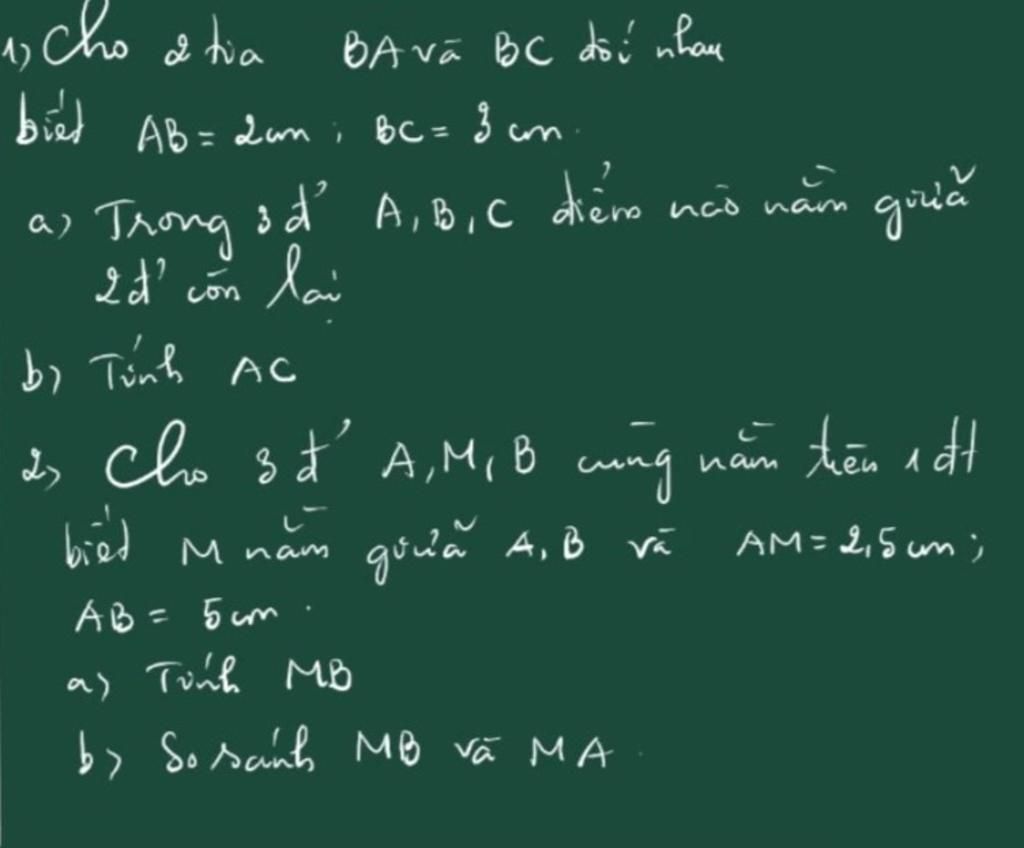 1) Cho 2 tia BA và BC đối nhau
biết AB = 2cm ; BC = 3 cm.
a) Trong 3 đ' A, B, C điểm nào nằm giữa
2 đ' còn lại
b) Tính AC
2) Cho 3 đ' A, M, B cùng nằm trên 1 đt
biết M nằm giữa A, B và AM = 2,5 cm ;
AB = 5 cm .
a) Tính MB
b) So sánh MB và MA .